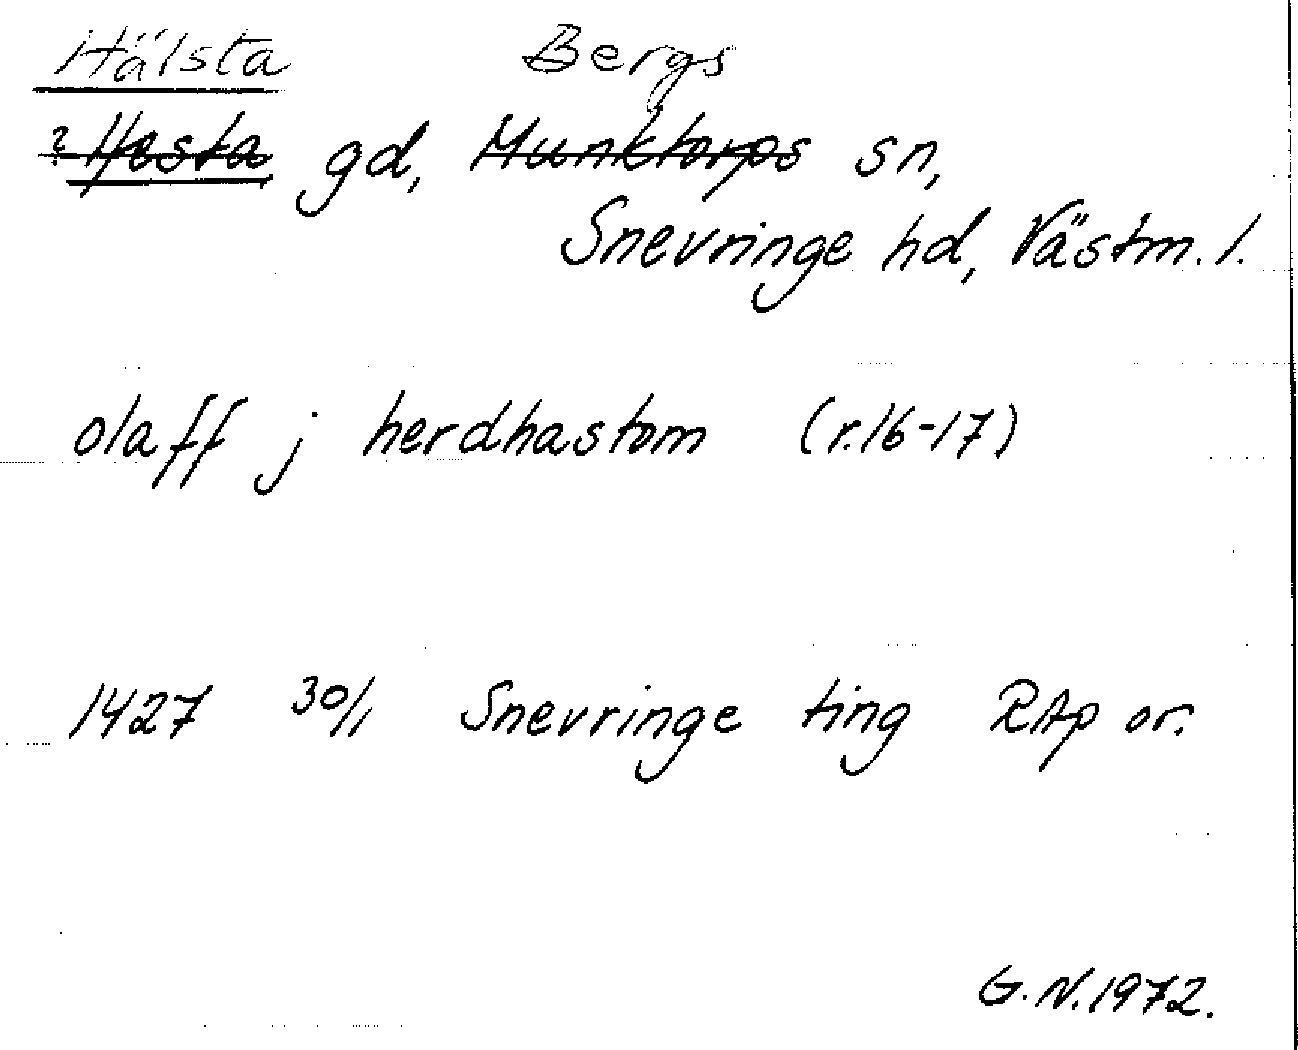 Hälsta Bergs
? Hesta gd, Munktorps sn,
Snevringe hd, Västm. l.
olaff j herdhastom (r.16-17)
1427 30/1 Snevringe ting RAp or.
G. N. 1972.